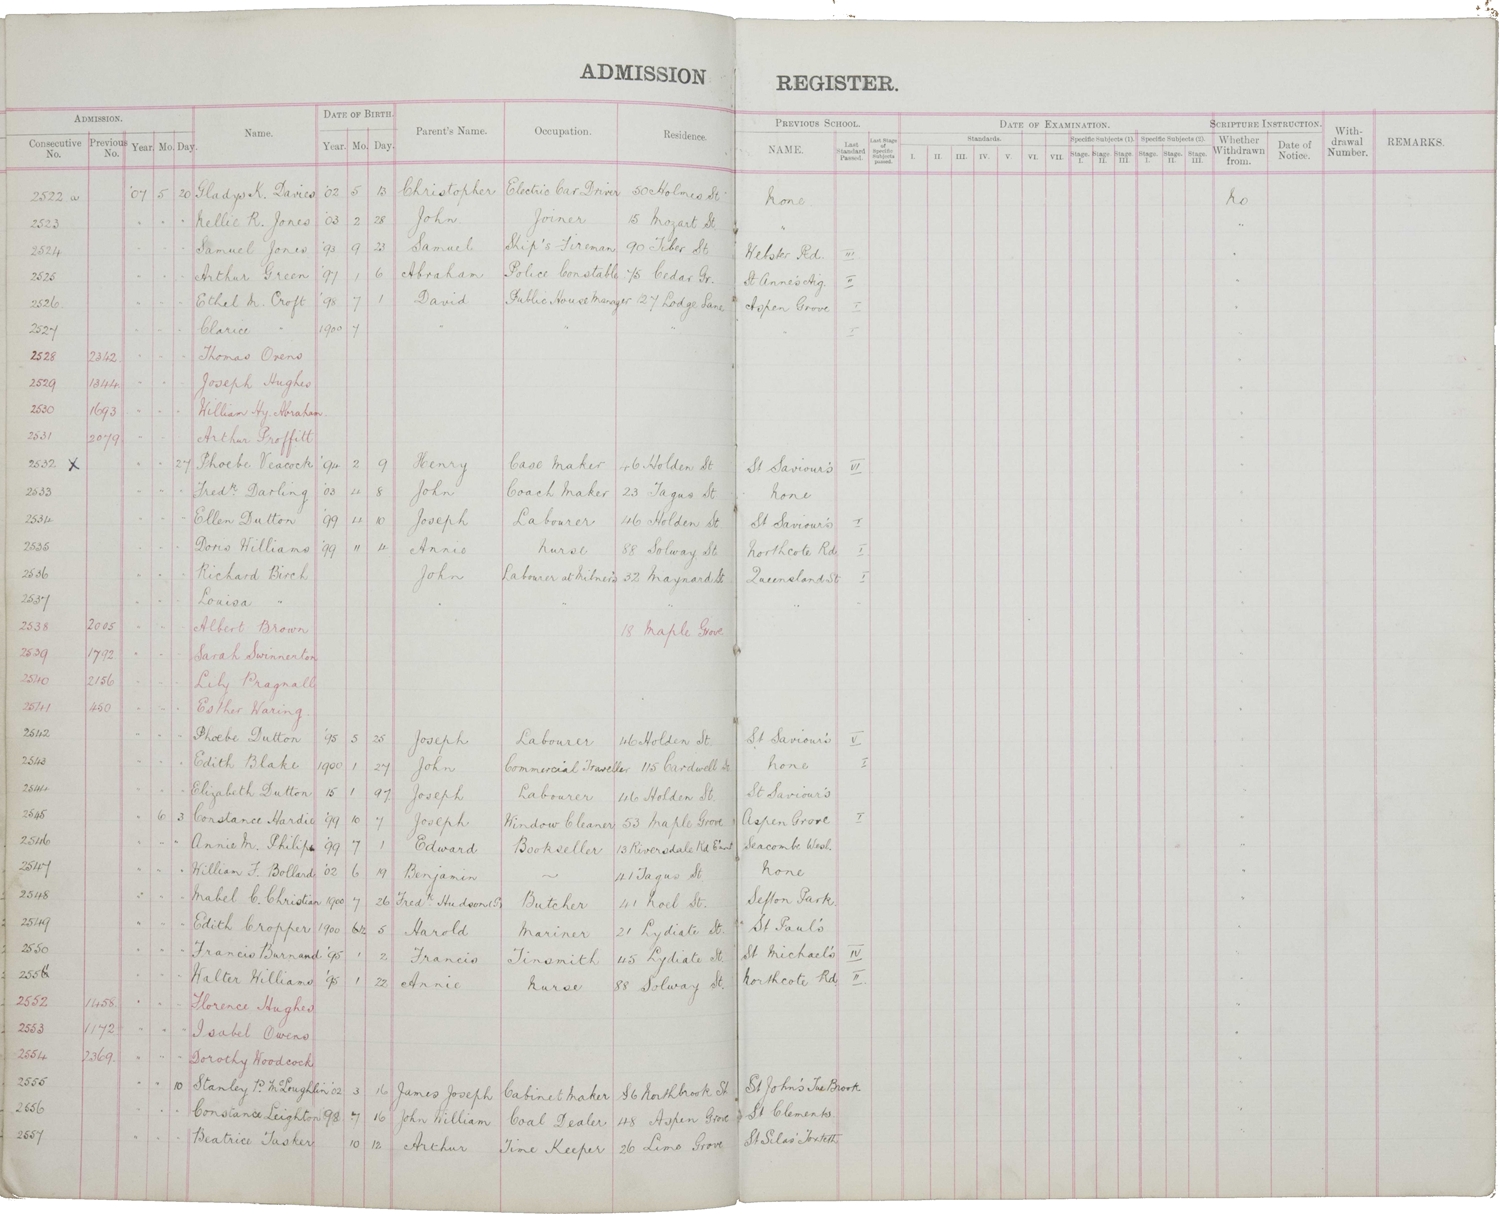 ADMISSION REGISTER.
ADMISSION. Name. DATE OF BIRTH. Parent's Name. Occupation. Residence. PREVIOUS SCHOOL. DATE OF EXAMINATION. SCRIPTURE INSTRUCTION. With-drawal Number. REMARKS.
Consecutive No. Previous No. Year. Mo. Day. Year. Mo. Day. NAME. Last Standard Passed. Last Stage of Specific Subjects passed. Standards. Specific Subjects (1). Specific Subjects (2). Whether Withdrawn from. Date of Notice.
I. II. III. IV. V. VI. VII. Stage. I. Stage. II. Stage III Stage. I. Stage. II. Stage. III.
2522 '07 5 20 Gladys K. Davies '02 5 13 Christopher Electric Car Driver 50 Holmes St none no
2523 " " " Nellie R. Jones '03 2 28 John Joiner 15 Mozart St " "
2524 " " " Samuel Jones '93 9 23 Samuel Ship's Fireman 90 Tiber St. Webster Rd. III "
2525 " " " Arthur Green '97 1 6 Abraham Police Constable 75 Cedar Gr. St Anne's Aig. II "
2526 " " " Ethel M. Croft '98 7 1 David Public House Manager 127 Lodge Lane Aspen Grove I "
2527 " " " Clarice " 1900 7 " " " " I "
2528 2342 " " " Thomas Owens "
2529 1344 " " " Joseph Hughes "
2530 1693 " " " William Hy. Abraham "
2531 2079 " " " Arthur Proffitt "
2532 X " " 27 Phoebe Veacock '94 2 9 Henry Case Maker 46 Holden St St Saviour's VI "
2533 " " " Fredk. Darling '03 4 8 John Coach Maker 23 Tagus St none "
2534 " " " Ellen Dutton '99 4 10 Joseph Labourer 46 Holden St St Saviour's I "
2535 " " " Doris Williams '99 11 4 Annie Nurse 88 Solway St Northcote Rd I "
2536 " " " Richard Birch John Labourer at Milner's 32 Maynard St Queensland St I "
2537 " " " Louisa " " " " " "
2538 2005 " " " Albert Brown 18 Maple Grove "
2539 1792 " " " Sarah Swinnerton "
2540 2156 " " " Lily Pragnall "
2541 450 " " " Esther Waring. "
2542 " " " Phoebe Dutton '95 5 25 Joseph Labourer 46 Holden St. St Saviour's V "
2543 " " " Edith Blake 1900 1 27 John Commercial Traveller 115 Cardwell St none I "
2544 " " " Elizabeth Dutton 15 1 97 Joseph Labourer 46 Holden St. St Saviour's "
2545 " 6 3 Constance Hardie '99 10 7 Joseph Window Cleaner 53 Maple Grove Aspen Grove I "
2546 " " " Annie M. Philips '99 7 1 Edward Bookseller 13 Riversdale Rd Seacombe Wesl. "
2547 " " " William F. Bollard '02 6 19 Benjamin ~ 41 Tagus St none "
2548 " " " Mabel C. Christian 1900 7 26 Fredk. Hudson Butcher 41 Noel St. Sefton Park. "
2549 " " " Edith Cropper 1900 5 Harold Mariner 21 Lydiate St. St Paul's "
2550 " " " Francis Burnand '95 1 2 Francis Tinsmith 45 Lydiate St St Michael's IV "
2551 " " " Walter Williams '95 1 22 Annie Nurse 88 Solway St. Northcote Rd II "
2552 1458 " " " Florence Hughes "
2553 1172 " " " Isabel Owens "
2554 2369 " " " Dorothy Woodcock "
2555 " " 10 Stanley P. McLoughlin '02 3 16 James Joseph Cabinet Maker 56 Northbrook St St John's Tue Brook "
2556 " " " Constance Leighton 98 7 16 John William Coal Dealer 48 Aspen Grove St Clements "
2557 " " " Beatrice Tasker 10 12 Arthur Time Keeper 26 Lime Grove St Silas' Toxteth "